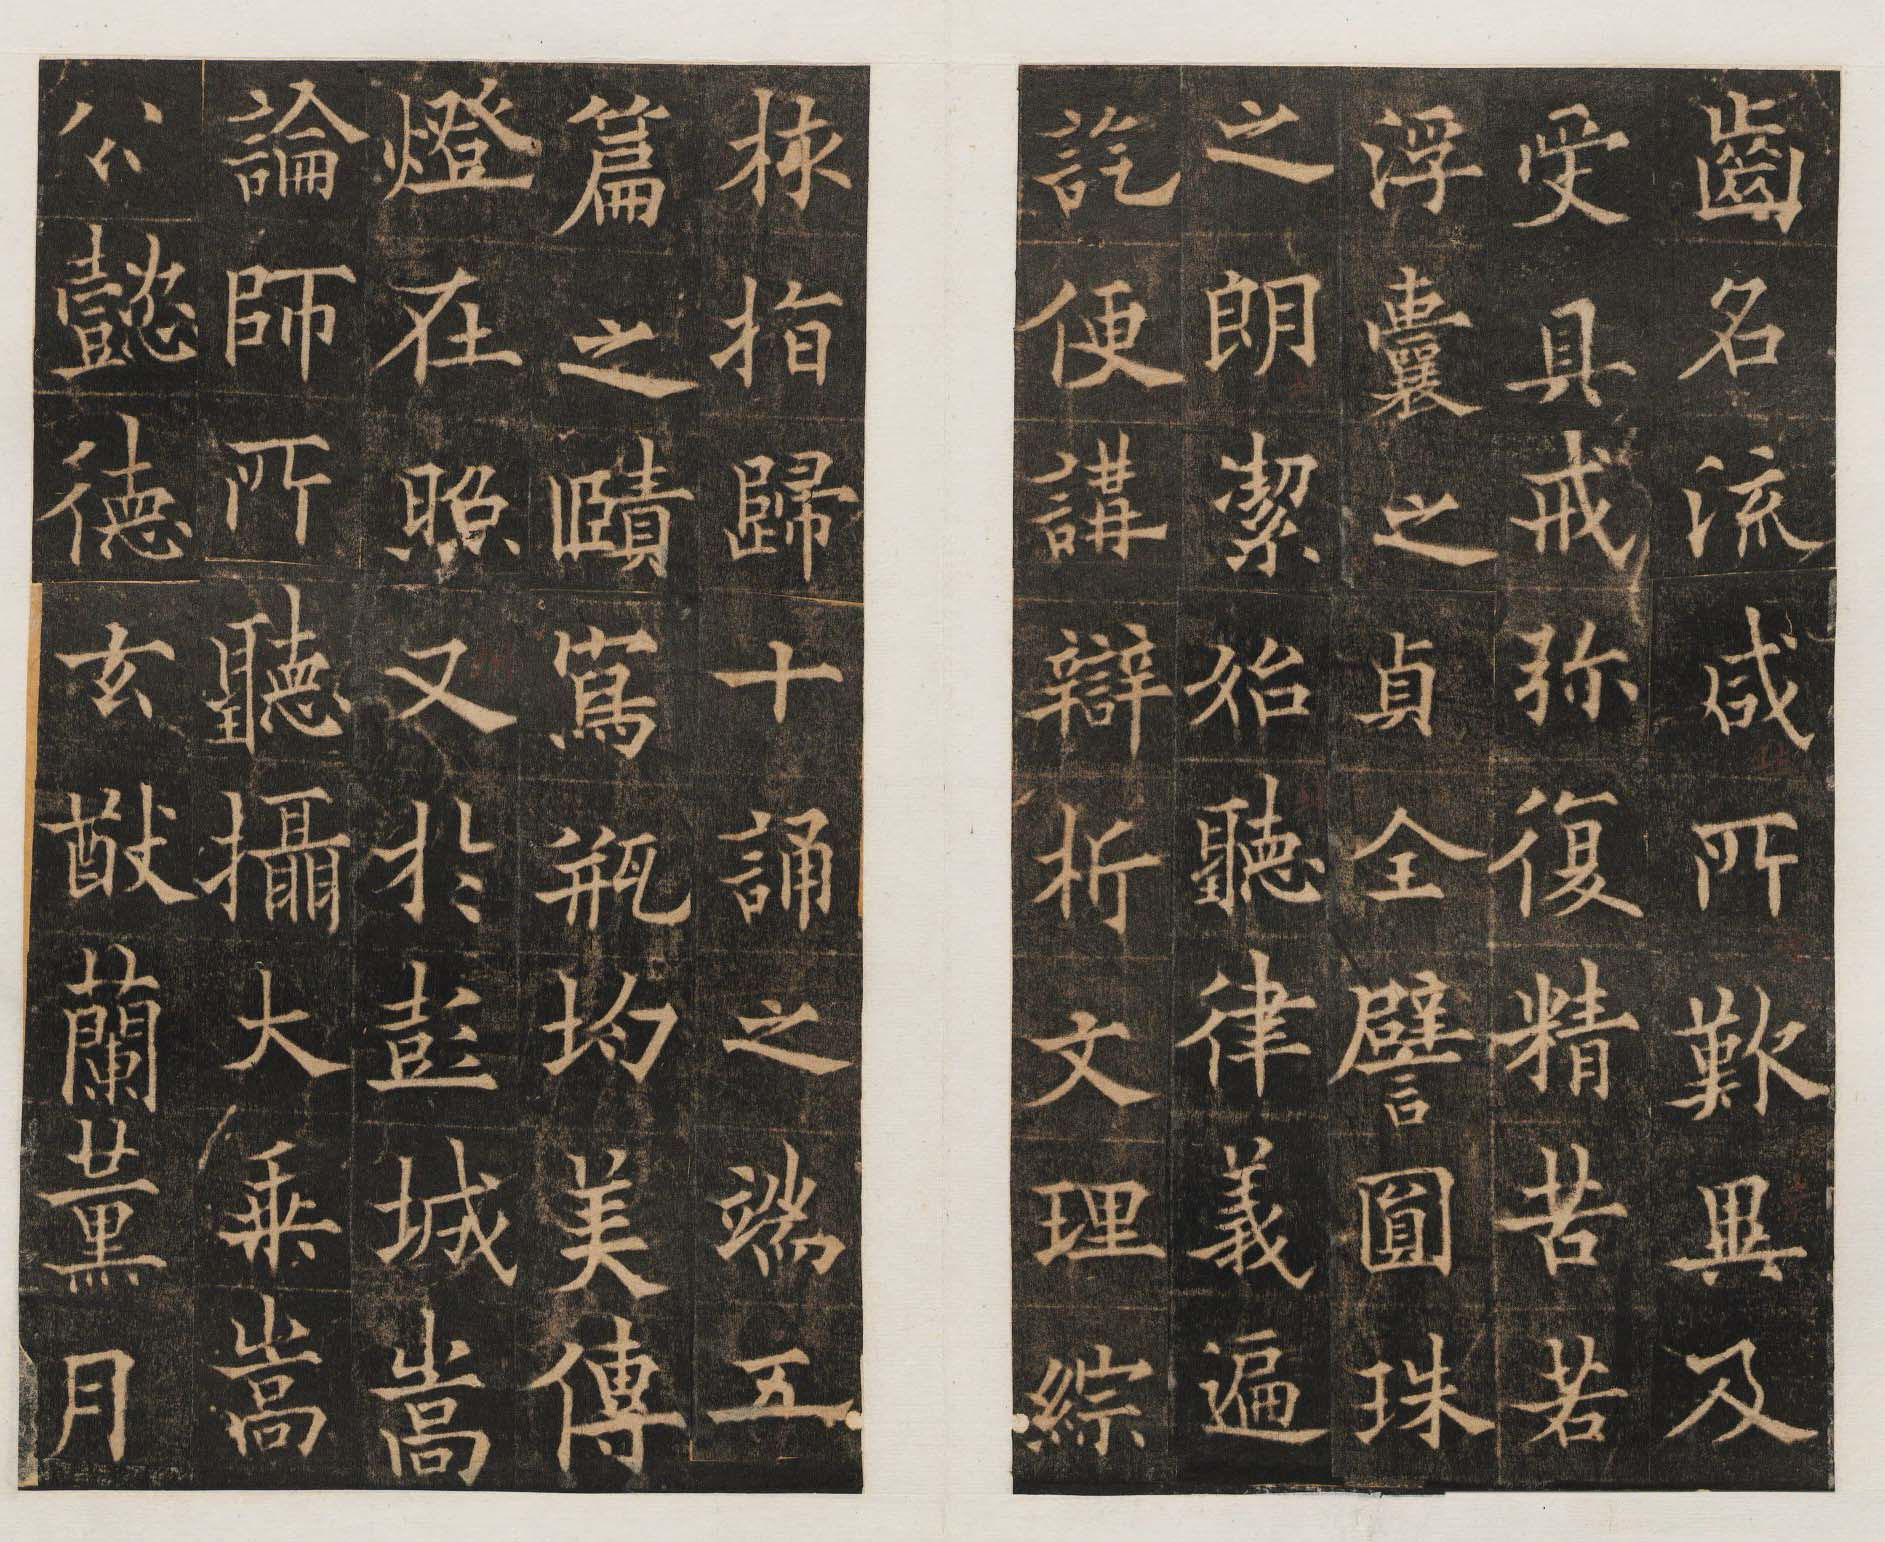 齒名流咸所歎異及
受具戒弥復精苦若
浮囊之貞全譬圓珠
之朗潔始聽律義遍
訖便講辯析文理綜
核指歸十誦之端五
篇之賾寫瓶均美傳
燈在照又於彭城嵩
論師所聽攝大乘嵩
公懿德玄猷蘭薰月